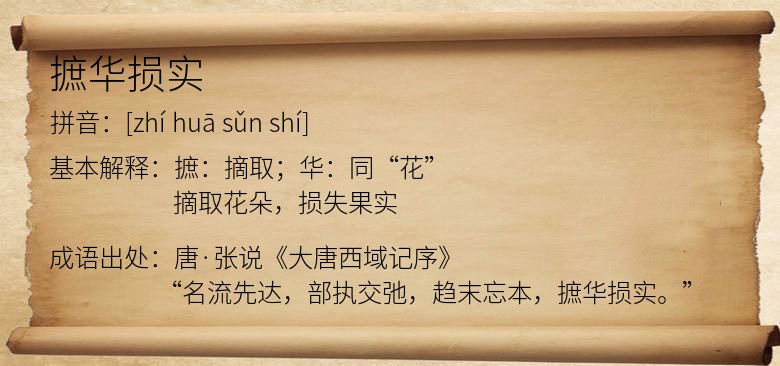 摭华损实
拼音：[zhí huā sǔn shí]
基本解释：摭：摘取；华：同“花”
摘取花朵，损失果实
成语出处：唐·张说《大唐西域记序》
“名流先达，部执交弛，趋末忘本，摭华损实。”